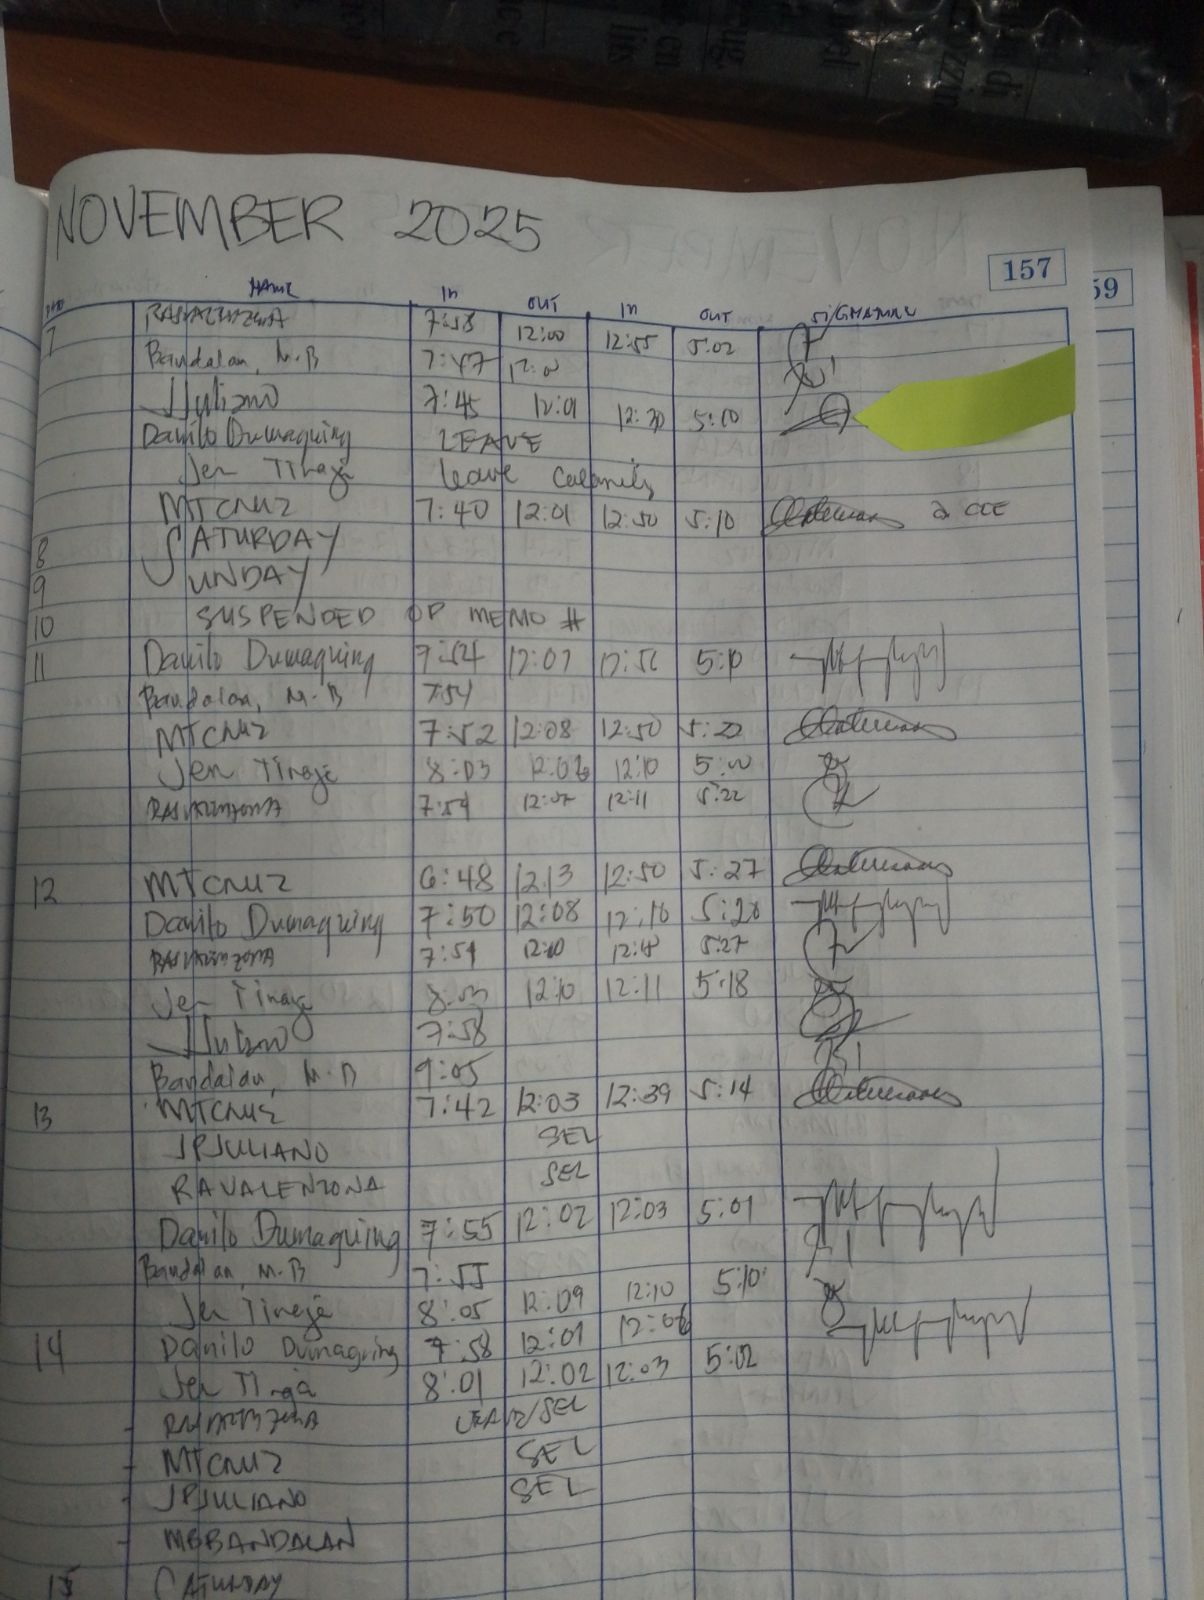 NOVEMBER 2025
157
59
NAME IN OUT IN OUT
7 RAVALENZONA 7:58 12:00 12:55 5:02
Bandalan, M.B 7:47 12:00
JJuliano 7:45 12:01 12:30 5:10
Danilo Dumaquing LEAVE
Jen Tinaje leave calamity
MTCRUZ 7:40 12:01 12:50 5:10
8 SATURDAY
9 SUNDAY
10 SUSPENDED OP MEMO #
11 Danilo Dumaquing 7:54 12:07 5:10
Bandalan, M.B 7:54
MTCRUZ 7:52 12:08 12:50 5:22
Jen Tinaje 8:03 12:06 12:10 5:00
RAVALENZONA 7:54 12:11 5:22
12 MTCRUZ 6:48 12:13 12:50 5:27
Danilo Dumaquing 7:50 12:08 12:10 5:28
RAVALENZONA 7:54 12:10 5:27
Jen Tinaje 8:03 12:10 12:11 5:18
JJuliano 7:58
Bandalan, M.B 9:05
13 MTCRUZ 7:42 12:03 12:39 5:14
JPJULIANO SEL
RAVALENZONA SEL
Danilo Dumaquing 7:55 12:02 12:03 5:01
Bandalan, M.B 7:55
Jen Tinaje 8:05 12:09 12:10 5:10
14 Danilo Dumaquing 7:58 12:01 12:06
Jen Tinaja 8:01 12:02 12:03 5:02
- RAVALENZONA LEAVE/SEL
- MTCRUZ SEL
- JPJULIANO SEL
- MBBANDALAN
15 SATURDAY